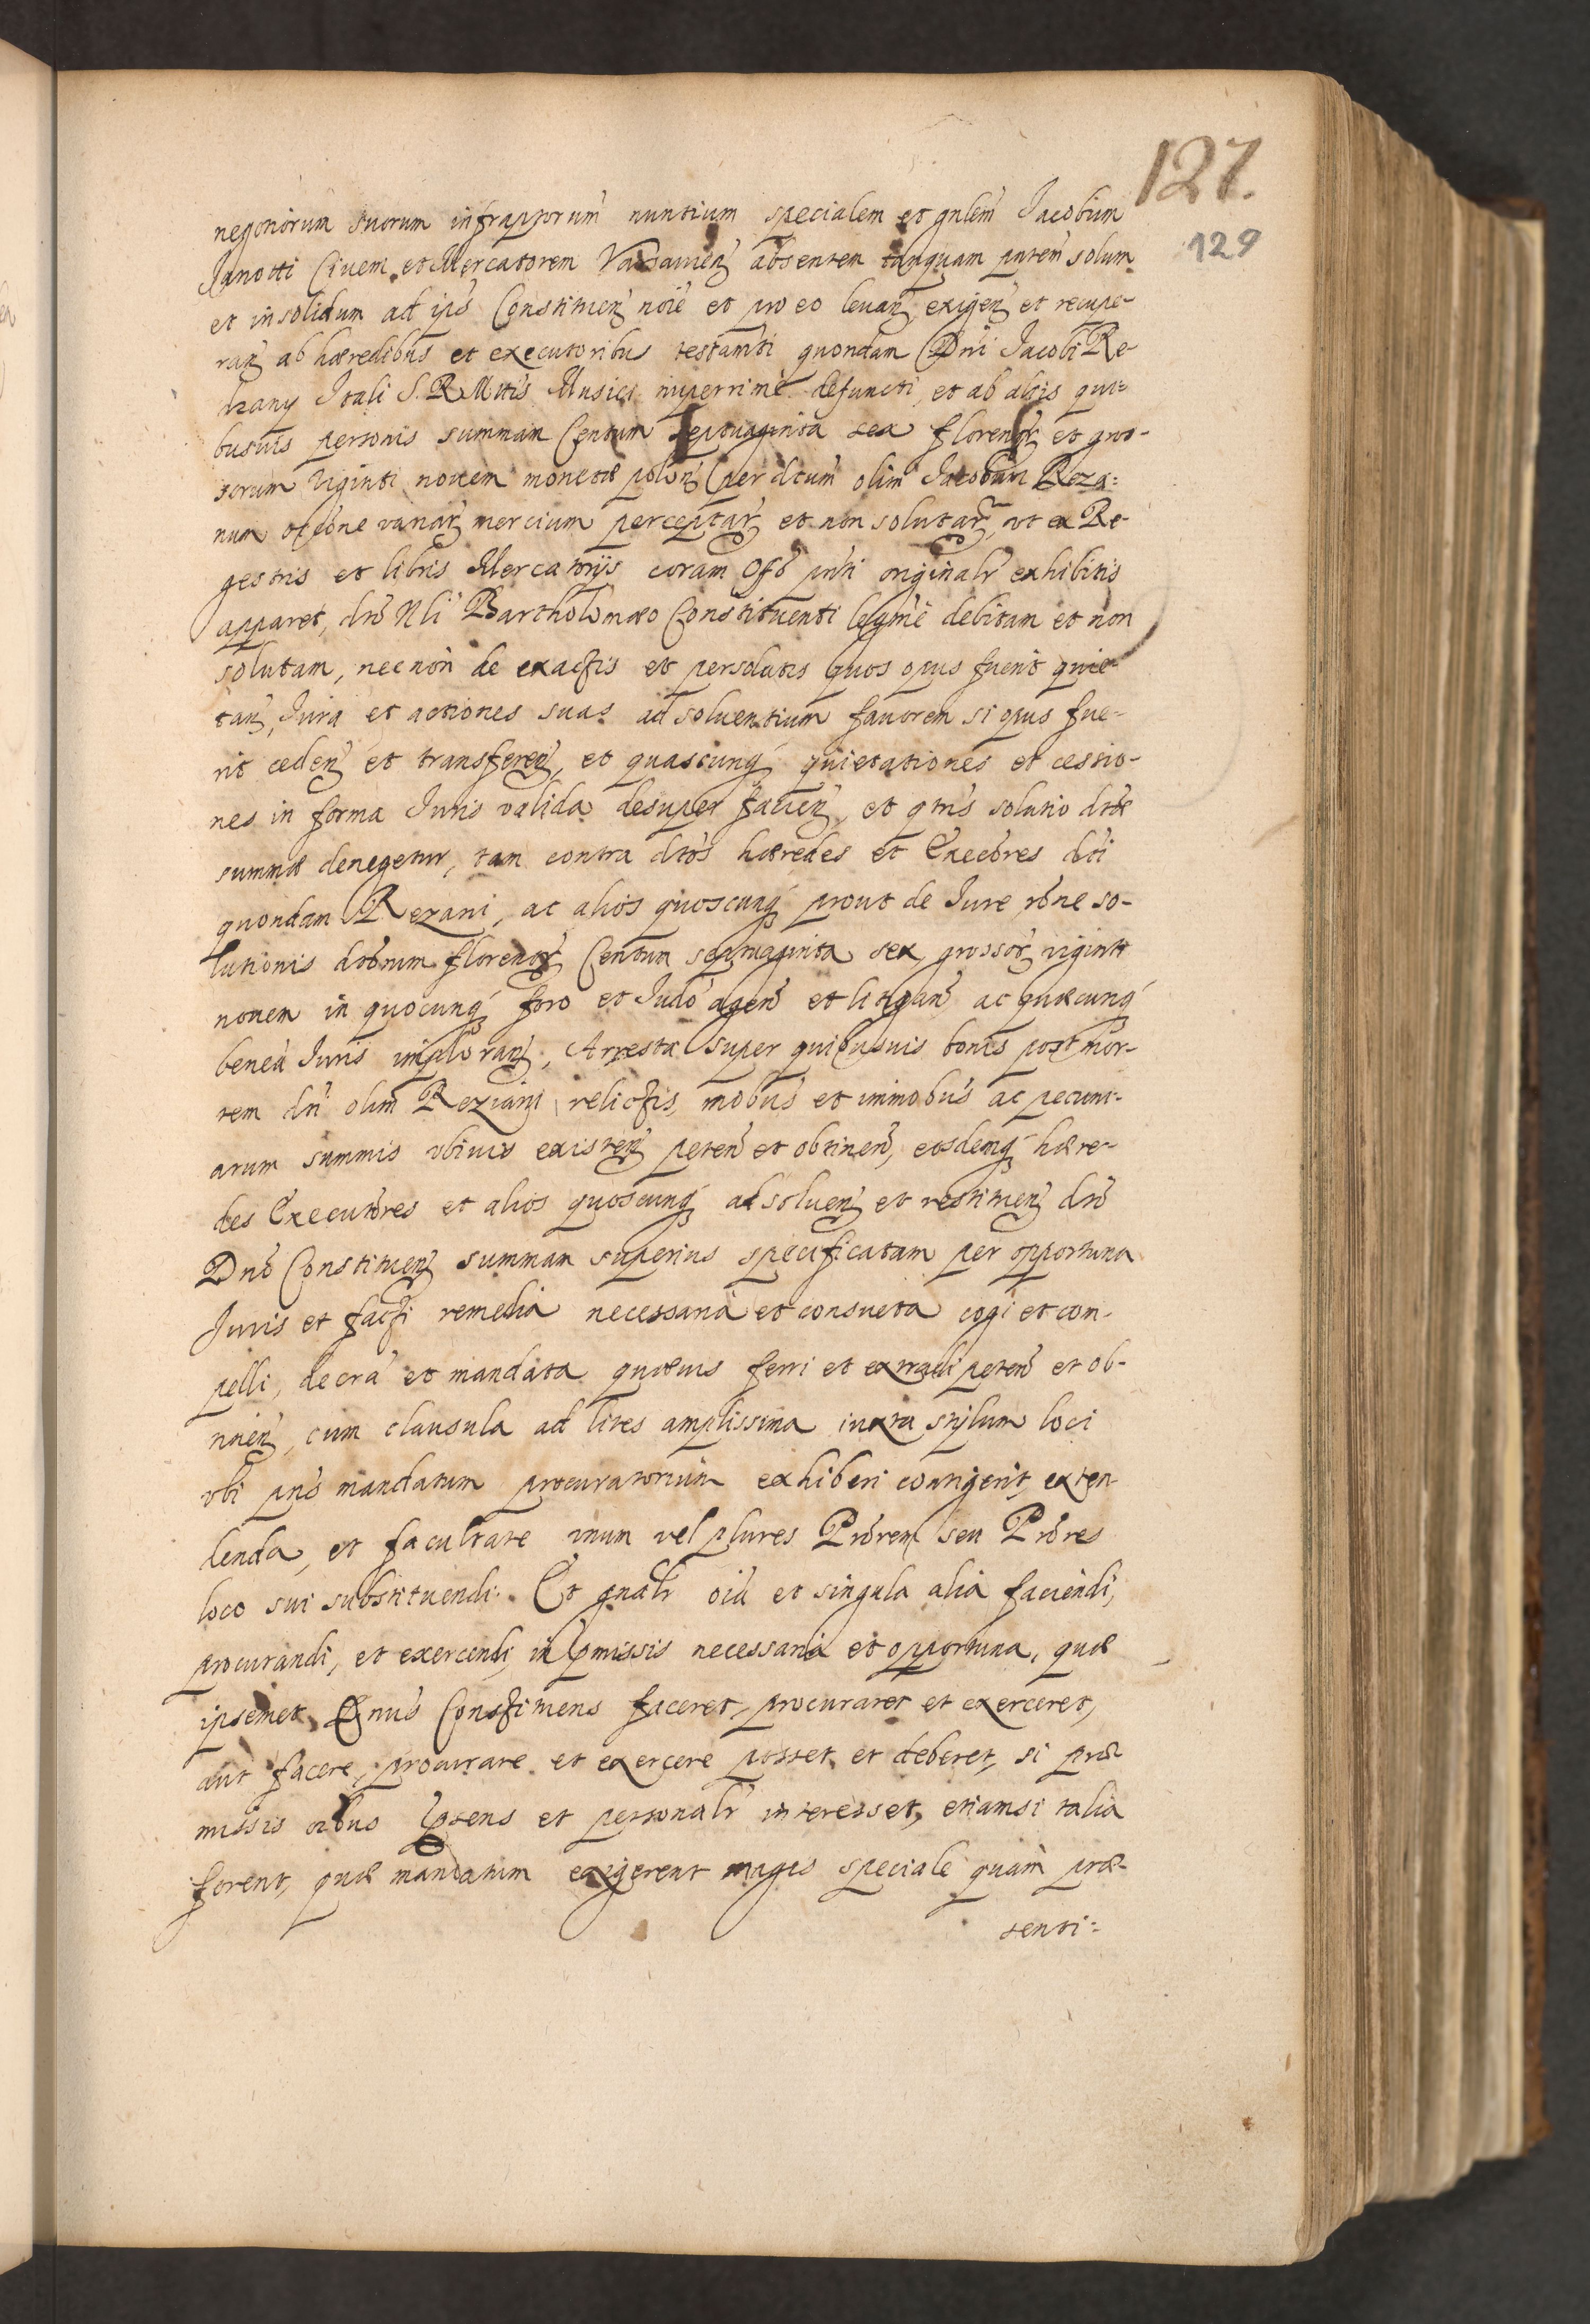 127.
129
negotiorum suorum infrapptorum nuntium specialem et gnlem Iacobum
Ianotti Civem et Mercatorem Varsavien absentem tanquam pntem solum
et insolidum ad ips Constituen noie et pro eo levan, exigen et recupe-
ran ab hæredibus et executoribus testamti quondam Dni Iacobi Re-
zany Itali S. R. Mttis Musici nuperrime defuncti, et ab aliis qui-
busvis personis summam Centum septuaginta sex florenor et gros-
sorum viginti novem monetæ polon per dctum olim Iacobum Reza-
num occone variar mercium perceptar et non solutar, ut ex Re-
gestris et libris Mercatorijs coram Offo pnti originalr exhibitis
apparet, dto Nli Bartholomæo Constituenti legme debitam et non
solutam, necnon de exactis et persolutis quos opus fuerit quie-
tan, Iura et actiones suas ad solventium favorem si opus fue-
rit ceden et transferen, et quascunq quietationes et cessio-
nes in forma Iuris valida desuper facien, et qtus solutio dtæ
summæ denegetur, tam contra dtos hæredes et Execres dti
quondam Rezani, ac alios quoscunq prout de Iure rone so-
lutionis dtorum florenor Centum septuaginta sex grossor viginti
novem in quocunq foro et Iudo agen et litigan ac quæcunq
benea Iuris imploran, Arresta super quibusvis bonis post mor-
tem dti olim Reziani relictis, mobus et immobus ac pecuni-
arum summis ubivis existen peten et obtinen, eosdemq hære-
des Executores et alios quoscunq ad solven et restituen dto
Dno Constituen summam superius specificatam per opportuna
Iuris et facti remedia necessaria et consueta cogi et com-
pelli, decra et mandata quævis ferri et extradi peten et ob-
tinen, cum clausula ad lites amplissima iuxta stylum loci
ubi pns mandatum procuratorium exhiberi contigerit, exten-
denda, et facultate unum vel plures Prorem seu Prores
loco sui substituendi. Et gnalr oia et singula alia faciendi,
procurandi, et exercendi, in pmissis necessaria et opportuna, quæ
ipsemet Dnus Constituens faceret, procuraret et exerceret,
aut facere, procurare et exercere posset et deberet, si præ-
missis oibus psens et personalr interesset, etiamsi talia
forent, quæ mandatum exigerent magis speciale quàm præ-
senti-